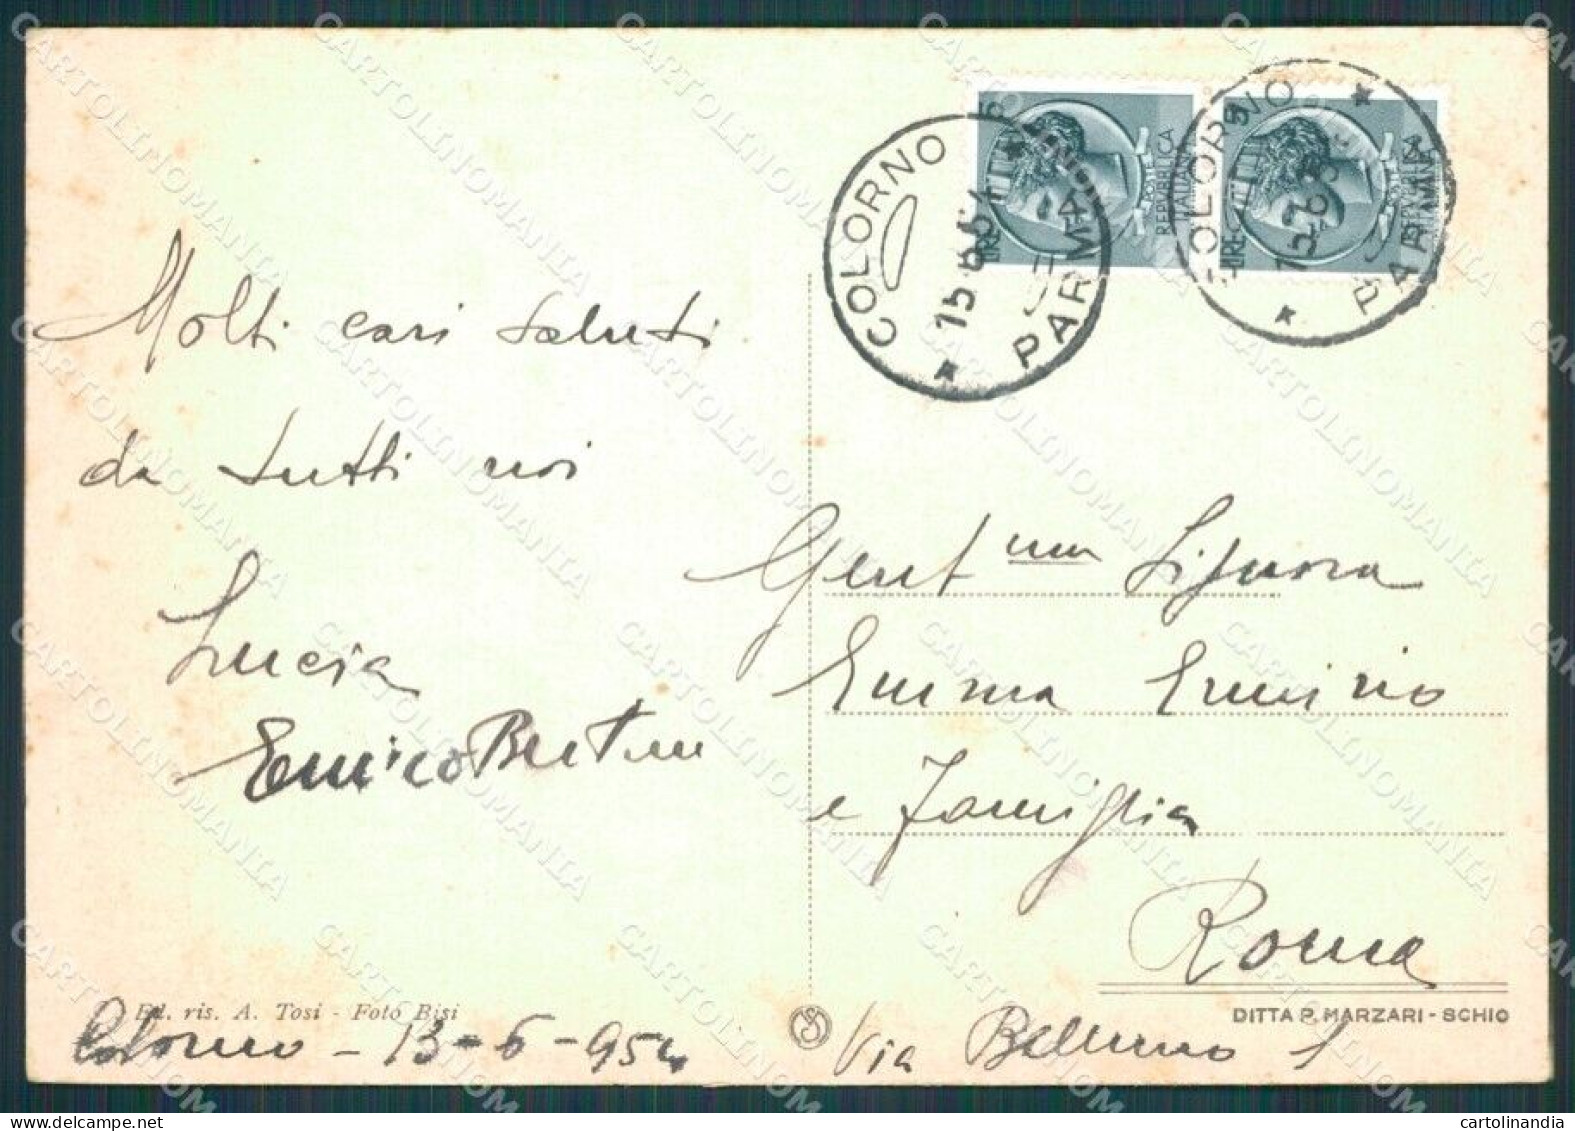 COLORNO
PARMA
15.6.54
COLORNO
PARMA
LIRE 5
REPUBBLICA
ITALIANA
LIRE 5
Molti cari saluti
da tutti noi
Lucia
Enrico
Gent ma Signora
Emma
e famiglia
Roma
Ed. ris. A. Tosi - Foto Bisi
DITTA P. MARZARI - SCHIO
Colorno - 13-6-954
Via Belluno 1
CARTOLINOMANIA
cartolinandia